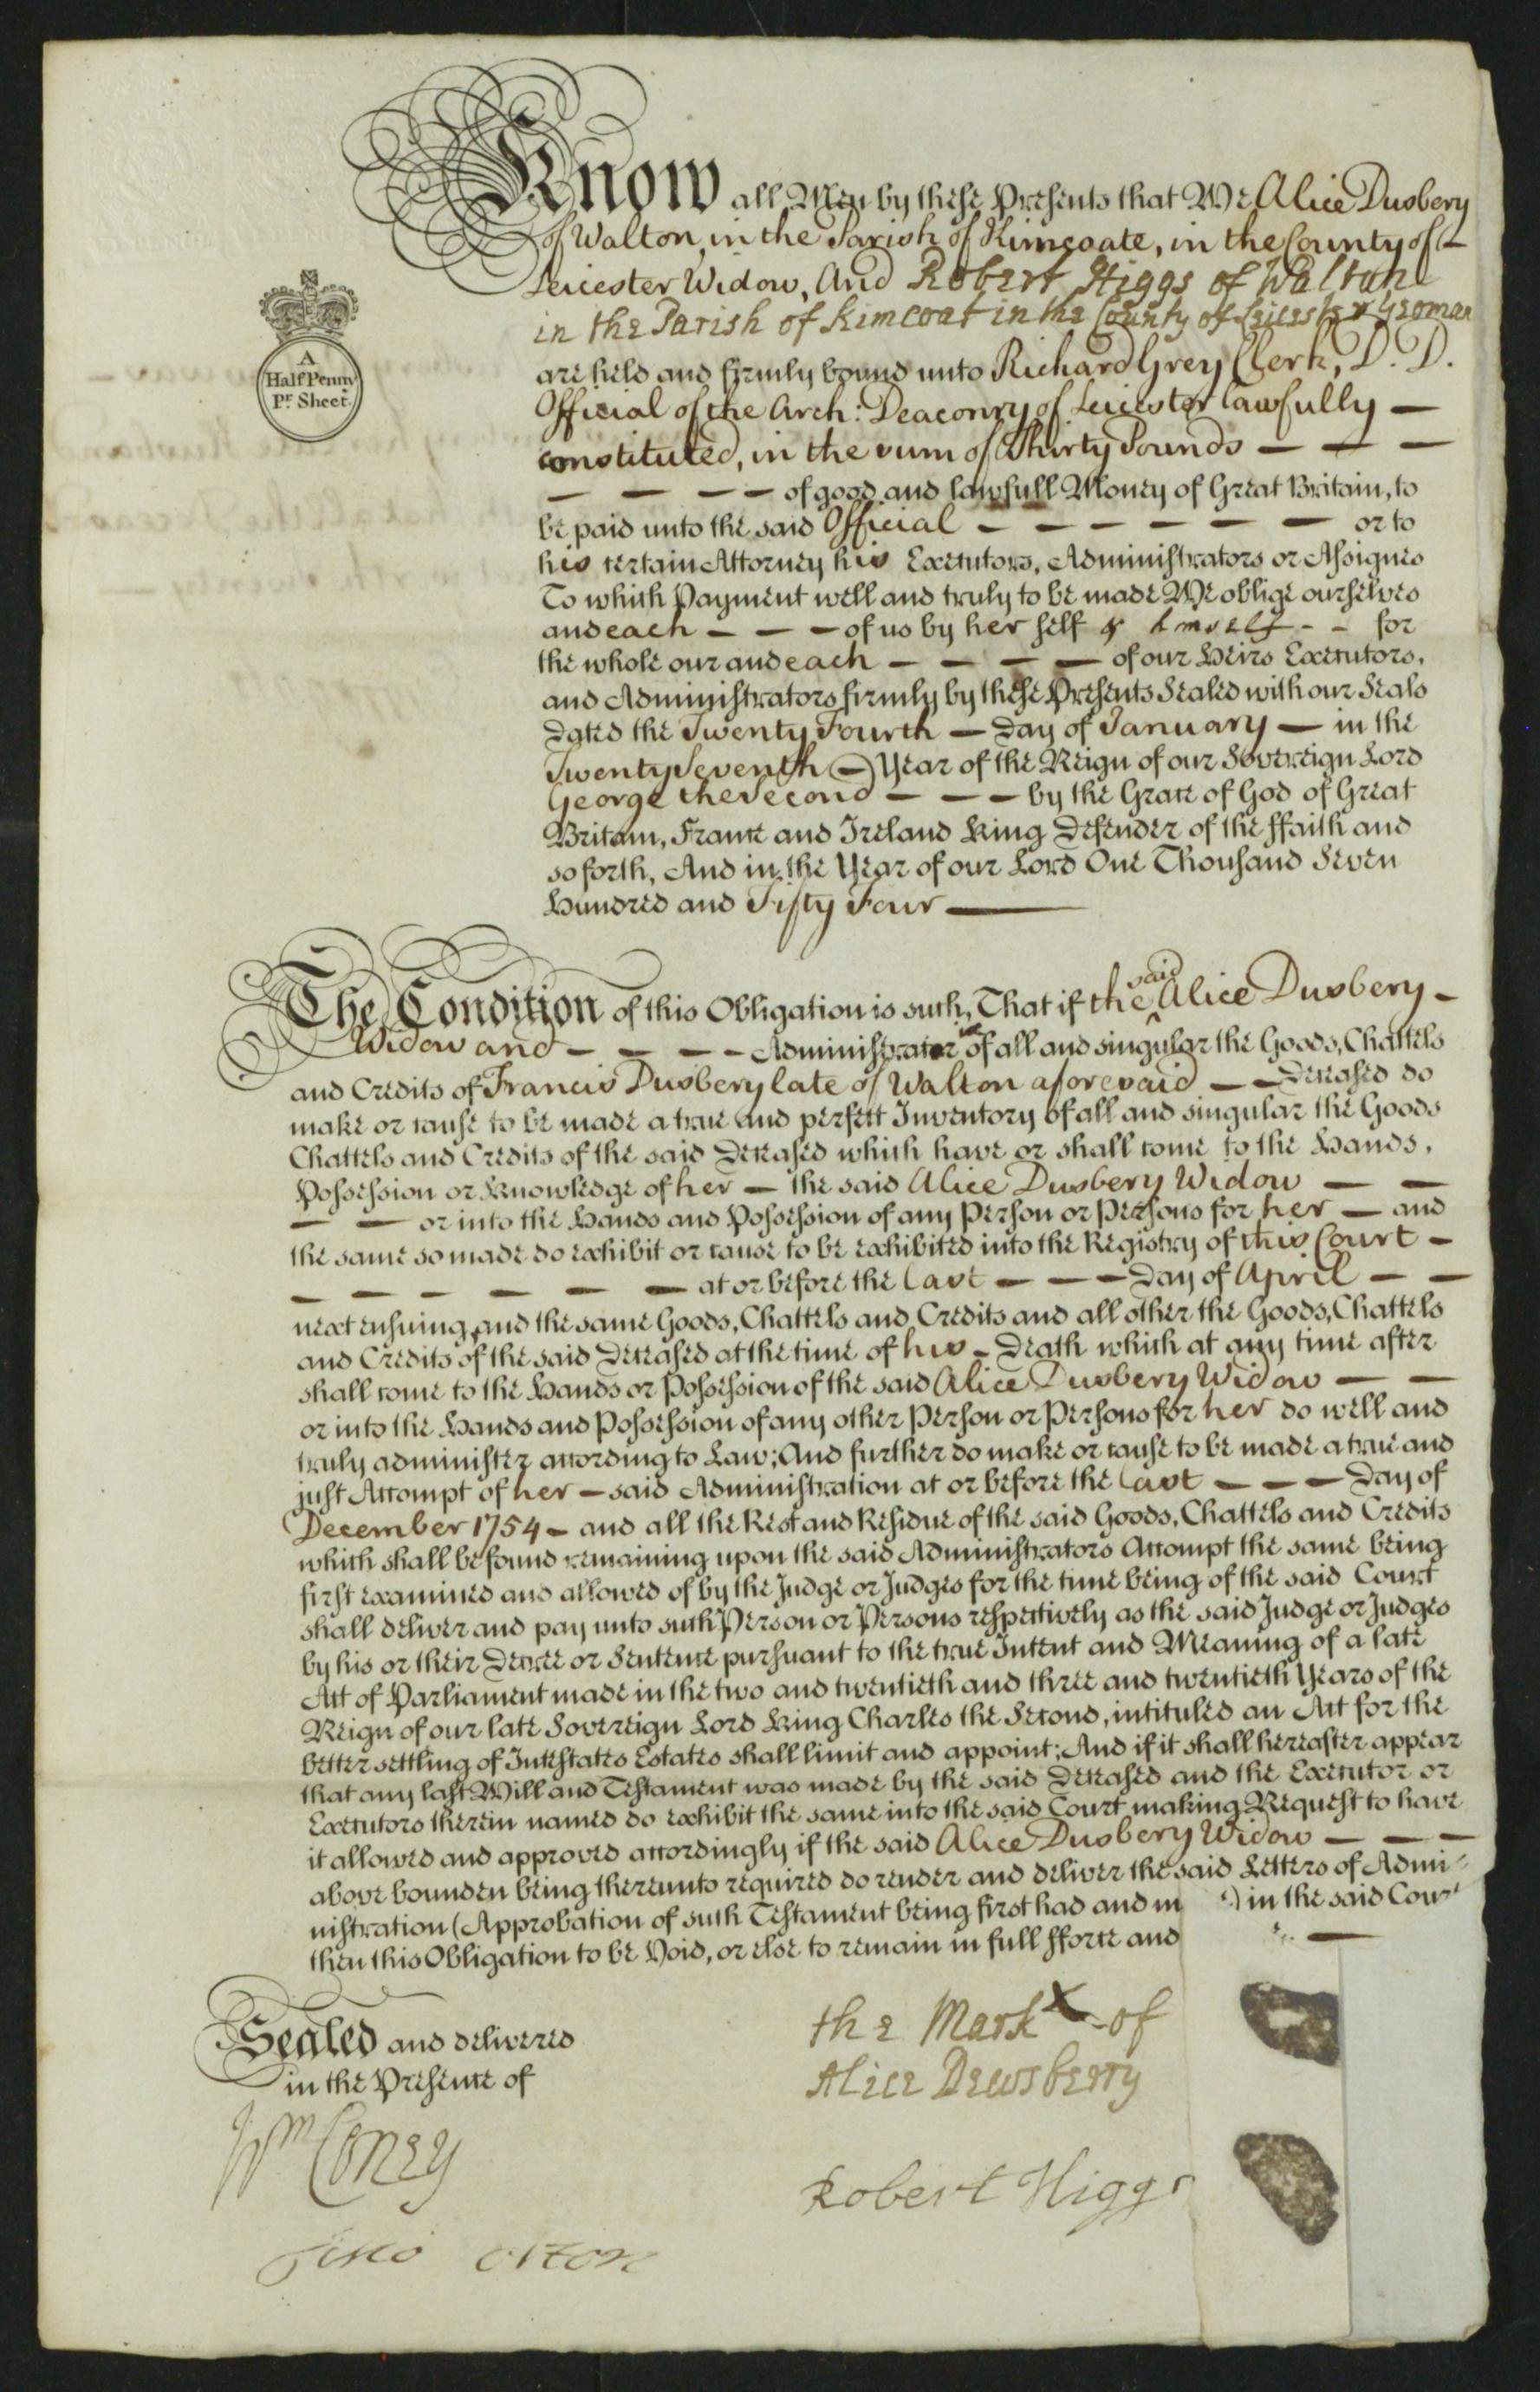 Know all Men by these Presents that We Alice Dusbery
of Walton, in the Parish of Kimcoate, in the County of
Leicester Widow, And Robert Higgs of Waltun
in the Parish of Kimcoat in the County of Leicester Yeoman
A
Half Penny
Pr. Sheet.
are held and firmly bound unto Richard Grey Clerk, D. D.
Official of the Arch: Deaconry of Leicester lawfully —
constituted, in the sum of Thirty Pounds — — —
— — — — of good and lawfull Money of Great Britain, to
be paid unto the said Official — — — — — — or to
his certain Attorney his Executors, Administrators or Assignes
To which Payment well and truly to be made We oblige ourselves
and each — — — of us by her self & himself - - for
the whole our and each — — — — of our Heirs Executors,
and Administrators firmly by these Presents Sealed with our Seals
Dated the Twenty Fourth — Day of January — in the
Twenty Seventh — Year of the Reign of our Sovereign Lord
George the Second — — — by the Grace of God of Great
Britain, France and Ireland King Defender of the ffaith and
so forth, And in the Year of our Lord One Thousand Seven
Hundred and Fifty Four —
The Condition of this Obligation is such, That if the said Alice Dusbery —
Widow and — — — — Administrator of all and singular the Goods, Chattels
and Credits of Francis Dusbery late of Walton aforesaid — — Deceased do
make or cause to be made a true and perfect Inventory of all and singular the Goods
Chattels and Credits of the said Deceased which have or shall come to the Hands,
Possession or Knowledge of her — the said Alice Dusbery Widow — —
— — or into the Hands and Possession of any Person or Persons for her — and
the same so made do exhibit or cause to be exhibited into the Registry of this Court —
— — — — — — at or before the last — — — Day of April — —
next ensuing and the same Goods, Chattels and Credits and all other the Goods, Chattels
and Credits of the said Deceased at the time of his — Death which at any time after
shall come to the Hands or Possession of the said Alice Dusbery Widow — —
or into the Hands and Possession of any other Person or Persons for her do well and
truly administer according to Law; And further do make or cause to be made a true and
just Accompt of her — said Administration at or before the last — — — Day of
December 1754 — and all the Rest and Residue of the said Goods, Chattels and Credits
which shall be found remaining upon the said Administrators Accompt the same being
first examined and allowed of by the Judge or Judges for the time being of the said Court
shall deliver and pay unto such Person or Persons respectively as the said Judge or Judges
by his or their Decree or Sentence pursuant to the true Intent and Meaning of a late
Act of Parliament made in the two and twentieth and three and twentieth Years of the
Reign of our late Sovereign Lord King Charles the Second, intituled an Act for the
better settling of Intestates Estates shall limit and appoint; And if it shall hereafter appear
that any last Will and Testament was made by the said Deceased and the Executor or
Executors therein named do exhibit the same into the said Court making Request to have
it allowed and approved accordingly if the said Alice Dusbery Widow — — —
above bounden being thereunto required do render and deliver the said Letters of Admi-
nistration (Approbation of such Testament being first had and m ) in the said Court
then this Obligation to be Void, or else to remain in full fforce and —
Sealed and delivered
in the Presence of
the Mark X of
Alice Dewsberry
Wm Coney
Robert Higgs
Orton